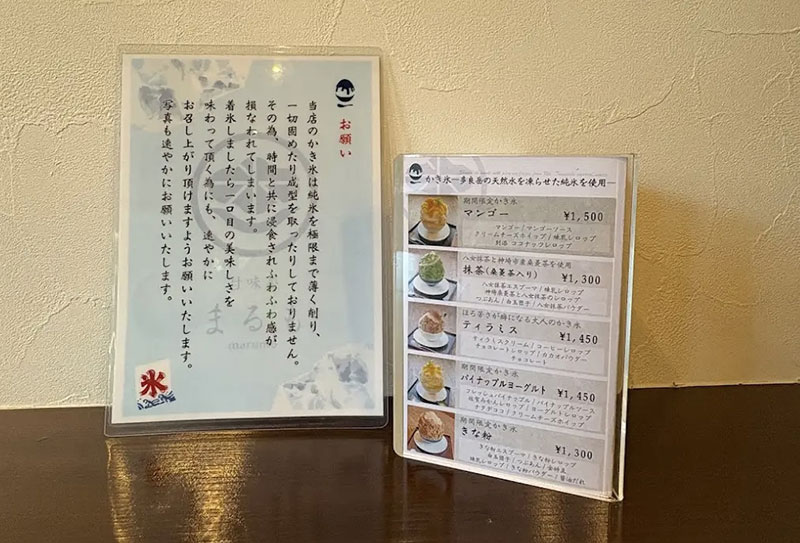 お願い
当店のかき氷は純氷を極限まで薄く削り、
一切固めたり成型を取ったりしておりません。
その為、時間と共に浸食されふわふわ感が
損なわれてしまいます。
着氷しましたら一口目の美味しさを
味わって頂く為にも、速やかに
お召し上がり頂けますようお願いいたします。
写真も速やかにお願いいたします。
味
まる
marumo
氷
かき氷―多良岳の天然水を凍らせた純氷を使用―
期間限定かき氷
マンゴー ¥1,500
マンゴー/マンゴーソース
クリームチーズホイップ/練乳シロップ
別添 ココナッツシロップ
八女抹茶と神埼市産桑菱茶を使用
抹茶(桑菱茶入り) ¥1,300
八女抹茶エスプーマ/練乳シロップ
神埼桑菱茶と八女抹茶のシロップ
つぶあん/白玉団子/八女抹茶パウダー
ほろ苦さが癖になる大人のかき氷
ティラミス ¥1,450
ティラミスクリーム/コーヒーシロップ
チョコレートシロップ/カカオパウダー
チョコレート
期間限定かき氷
パイナップルヨーグルト ¥1,450
フレッシュパイナップル/パイナップルソース
塩雪みかんシロップ/ヨーグルトシロップ
ナタデココ/クリームチーズホイップ
期間限定かき氷
きな粉 ¥1,300
きな粉エスプーマ/きな粉シロップ
白玉団子/つぶあん/金時豆
練乳シロップ/きな粉パウダー/醤油だれ